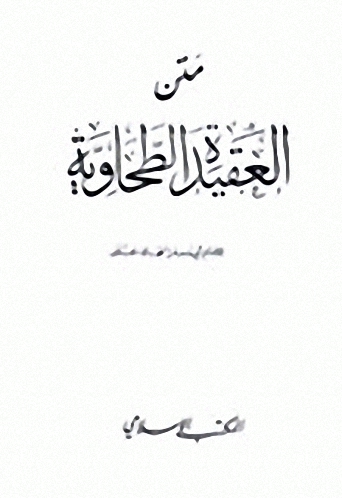 متن
العقيدة الطحاوية
المكتب الإسلامي